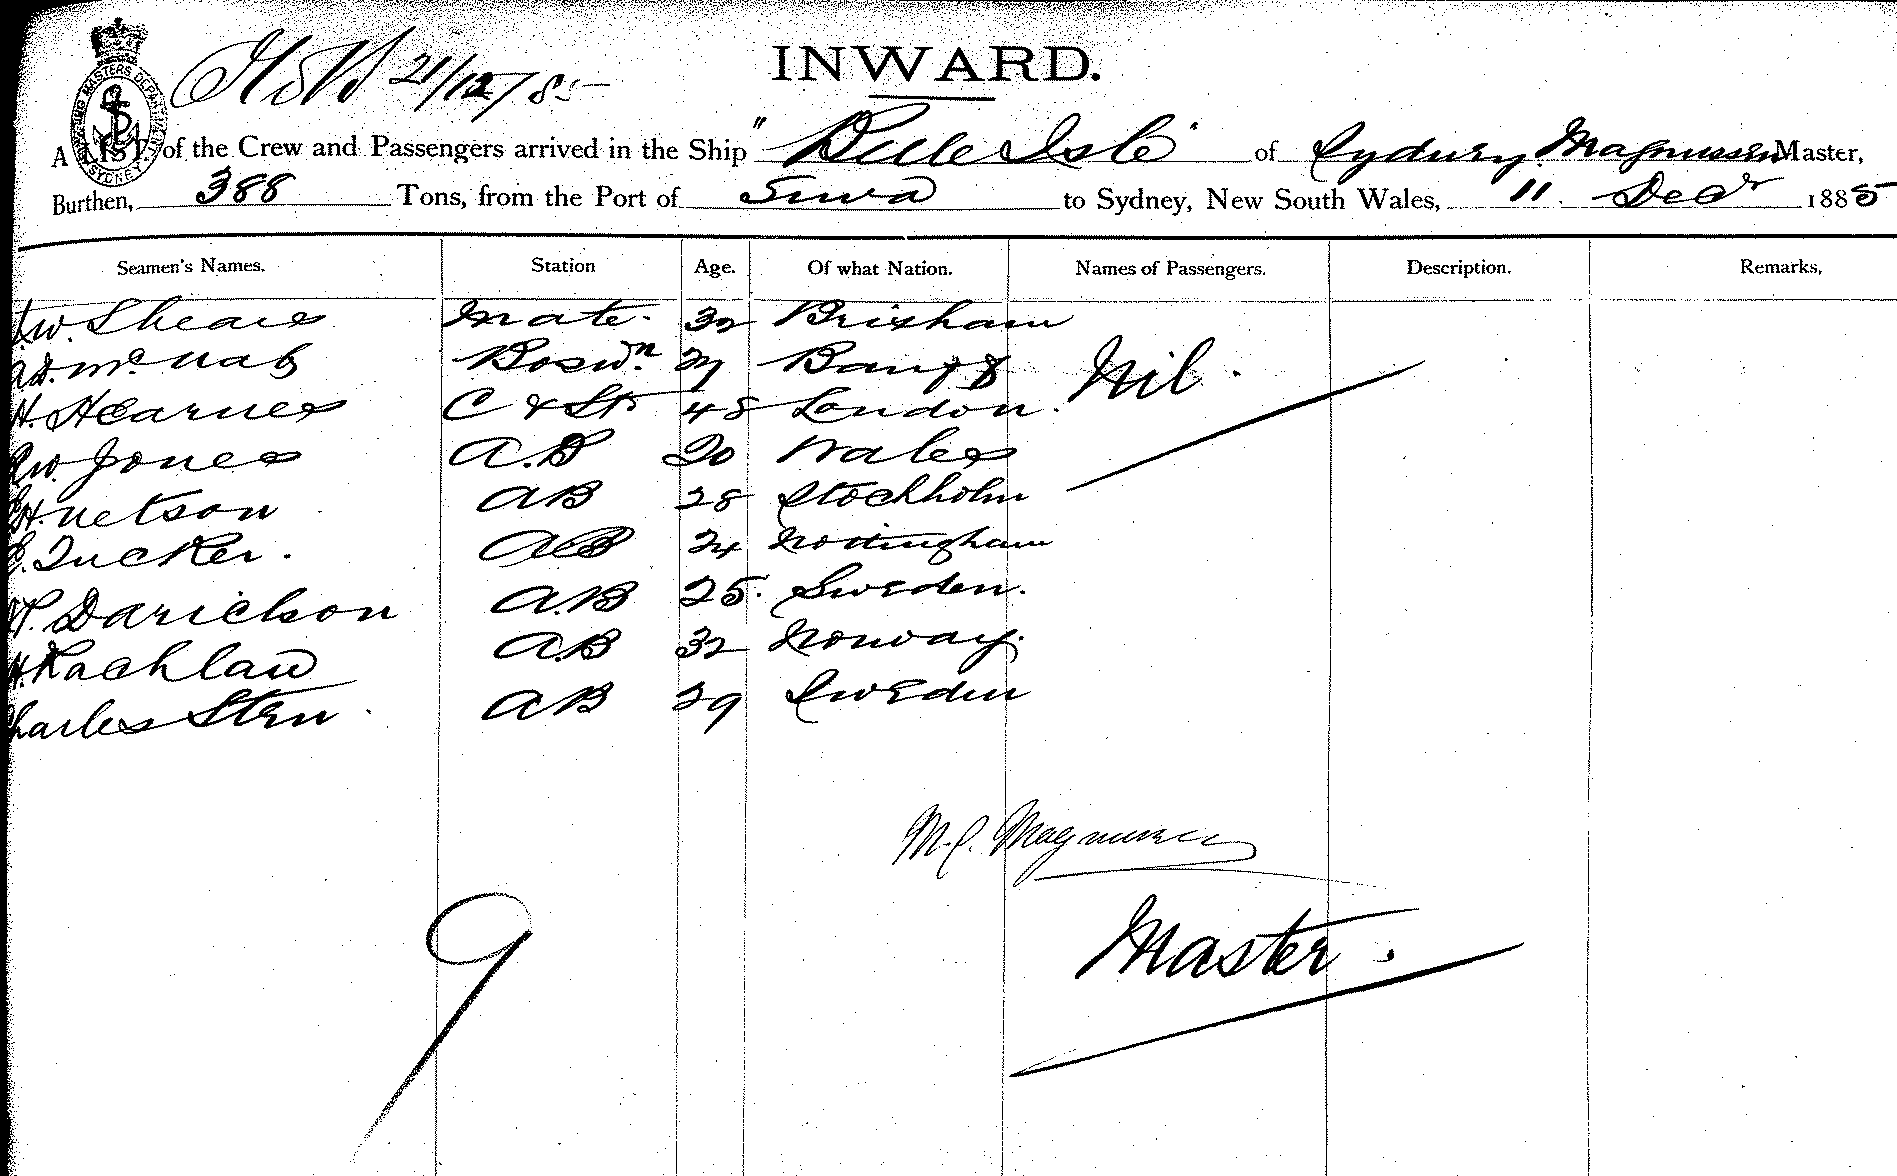 21/12/85
INWARD.
SHIPPING MASTERS DEPARTMENT SYDNEY.
A LIST of the Crew and Passengers arrived in the Ship "Belle Isle" of Sydney, Magnussen Master,
Burthen, 388 Tons, from the Port of Suva to Sydney, New South Wales, 11 Decr 1885
Seamen's Names. Station Age. Of what Nation. Names of Passengers. Description. Remarks,
W. Sheares Mate. 32 Brixham
McNab Boswn. Banff Nil.
H. Hearnes C & St 48 London.
W. Jones A.B 20 Wales
H. Netson AB 28 Stockholm
Tucker. AB 24 Nottingham
Darickson A.B 25. Sweden.
H. Rachlaw A.B 32 Norway.
Charles Stern AB 29 Sweden
M.C. Magnussen
Master.
9